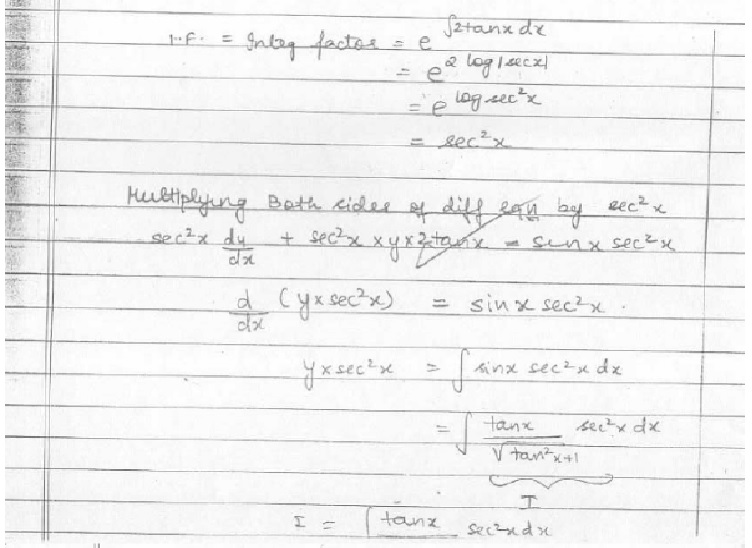 I.F. = Integ factor = e^∫2tanx dx
= e^2 log|secx|
= e^log sec²x
= sec²x
Multiplying Both sides of diff eqn by sec²x
sec²x dy/dx + sec²x × y × 2 tanx = sinx sec²x
d/dx (y × sec²x) = sinx sec²x .
y × sec²x = ∫ sinx sec²x dx
= ∫ tanx/√tan²x+1 sec²x dx
I
I = ∫ tanx sec²x dx